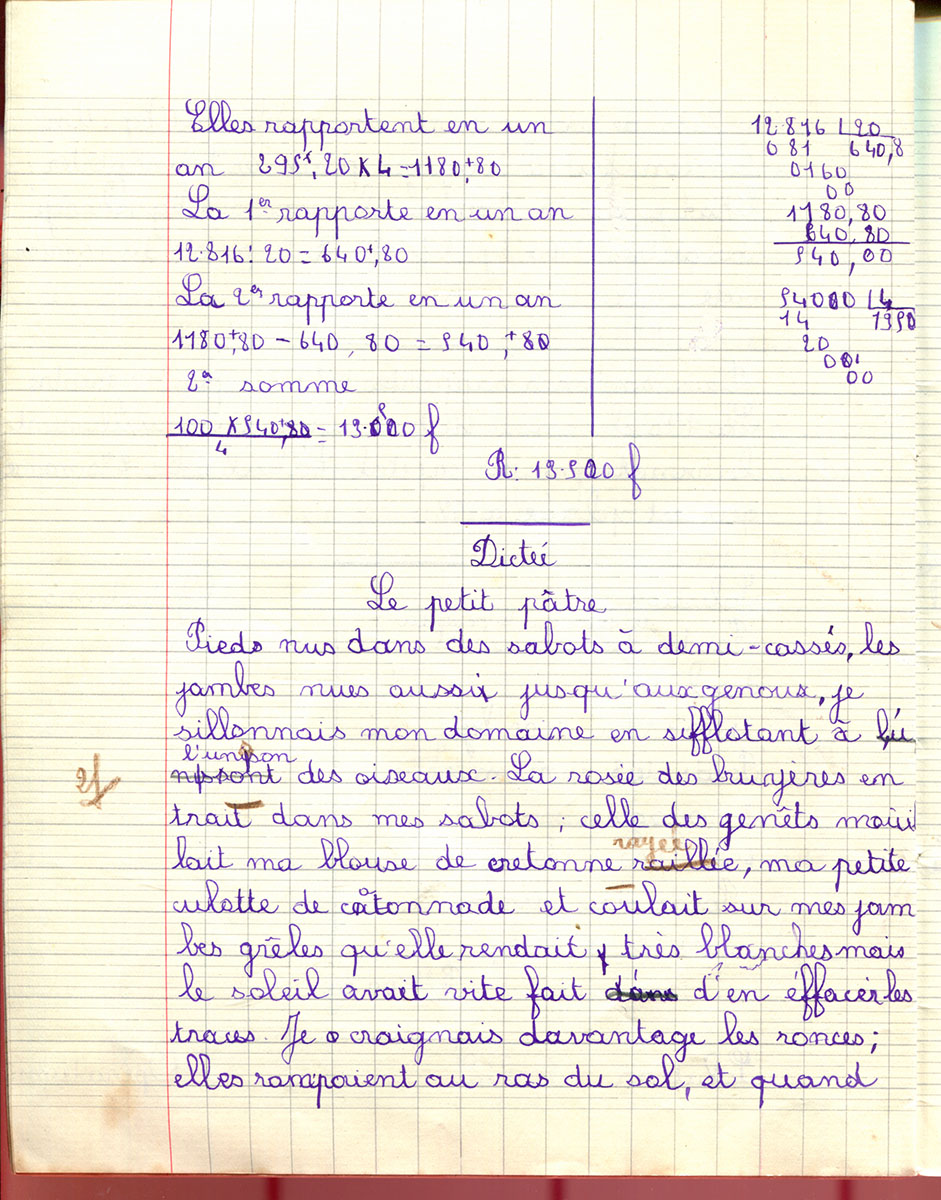 Elles rapportent en un
an 295f,20 x 4 = 1180f,80
La 1er rapporte en un an
12.816 : 20 = 640f,80
La 2er rapporte en un an
1180f,80 - 640,80 = 540,f80
2a somme
100 x 540f,80 = 13.500 f
4
R: 13.500 f
12.816 20
081 640,8
0160
00
1180,80
640,80
540,00
54000 4
14 1350
20
00
00
Dictée
Le petit pâtre
Pieds nus dans des sabots à demi-cassés, les
jambes nues aussi jusqu'aux genoux, je
sillonnais mon domaine en sifflotant à
l'unisson
des oiseaux. La rosée des bruyères en
2f
trait dans mes sabots ; celle des genêts mouil
rayée
lait ma blouse de cretonne raillée, ma petite
culotte de côtonnade et coulait sur mes jam
bes grêles qu'elle rendait très blanches mais
le soleil avait vite fait dans d'en éffacer les
traces. Je craignais davantage les ronces ;
elles rampaient au ras du sol, et quand